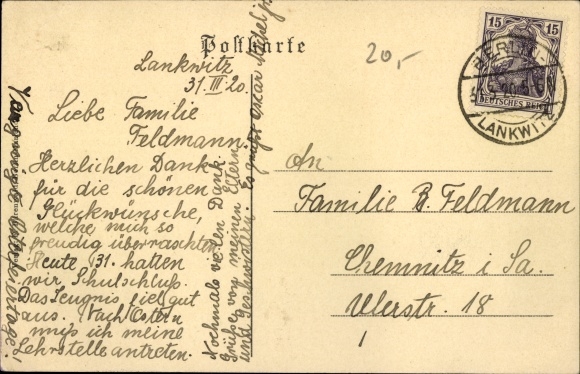 Postkarte
20,-
15 15
DEUTSCHES REICH
BERLIN-
LANKWITZ
Lankwitz
31.III 20.
Liebe Familie
Feldmann.
Herzlichen Dank
für die schönen
Glückwünsche,
welche mich so
freudig überraschten.
Heute 31. hatten
wir Schulschluß.
Das Zeugnis fiel gut
aus. Nach Ostern
muß ich meine
Lehrstelle antreten.
Nochmals vielen Dank
Grüße von meinen Eltern
und Geschwistern. Es grüßt Oskar
Vergnügte Ostertage!
An
Familie R. Feldmann
Chemnitz i Sa.
Ulerstr. 18